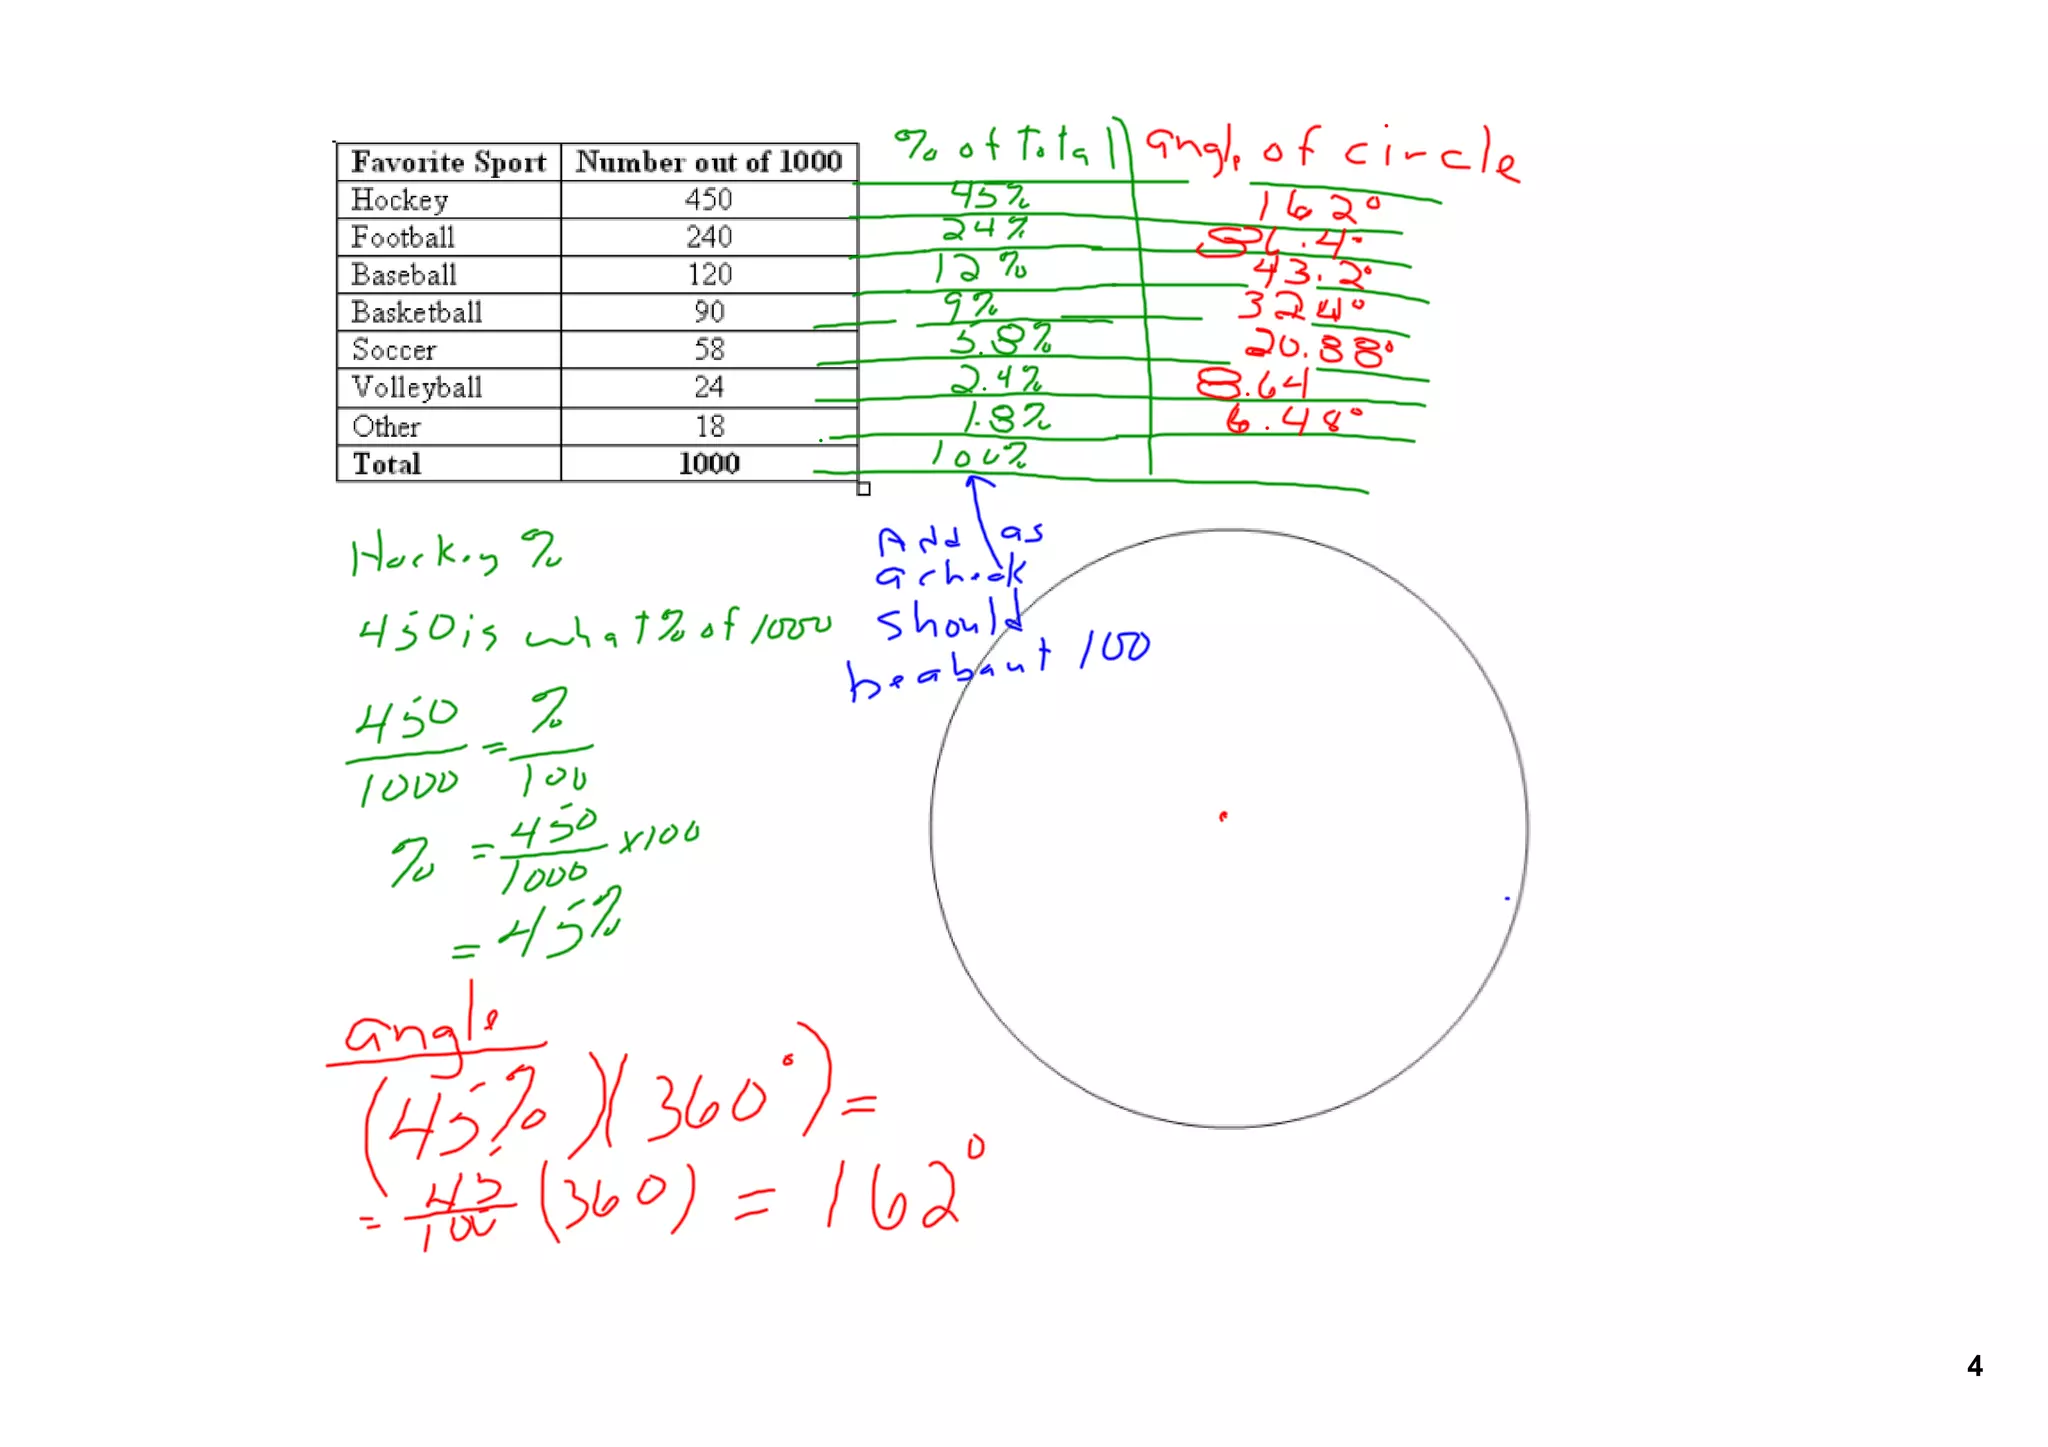 Favorite Sport Number out of 1000 % of Total angle of circle
Hockey 450 45% 162°
Football 240 24% 86.4°
Baseball 120 12% 43.2°
Basketball 90 9% 32.4°
Soccer 58 5.8% 20.88°
Volleyball 24 2.4% 8.64
Other 18 1.8% 6.48°
Total 1000 100%
Hockey %
450 is what % of 1000
450/1000 = %/100
% = 450/1000 x100
= 45%
Add as
a check
should
be about 100
angle
(45%)(360°) =
= 45/100 (360) = 162°
4